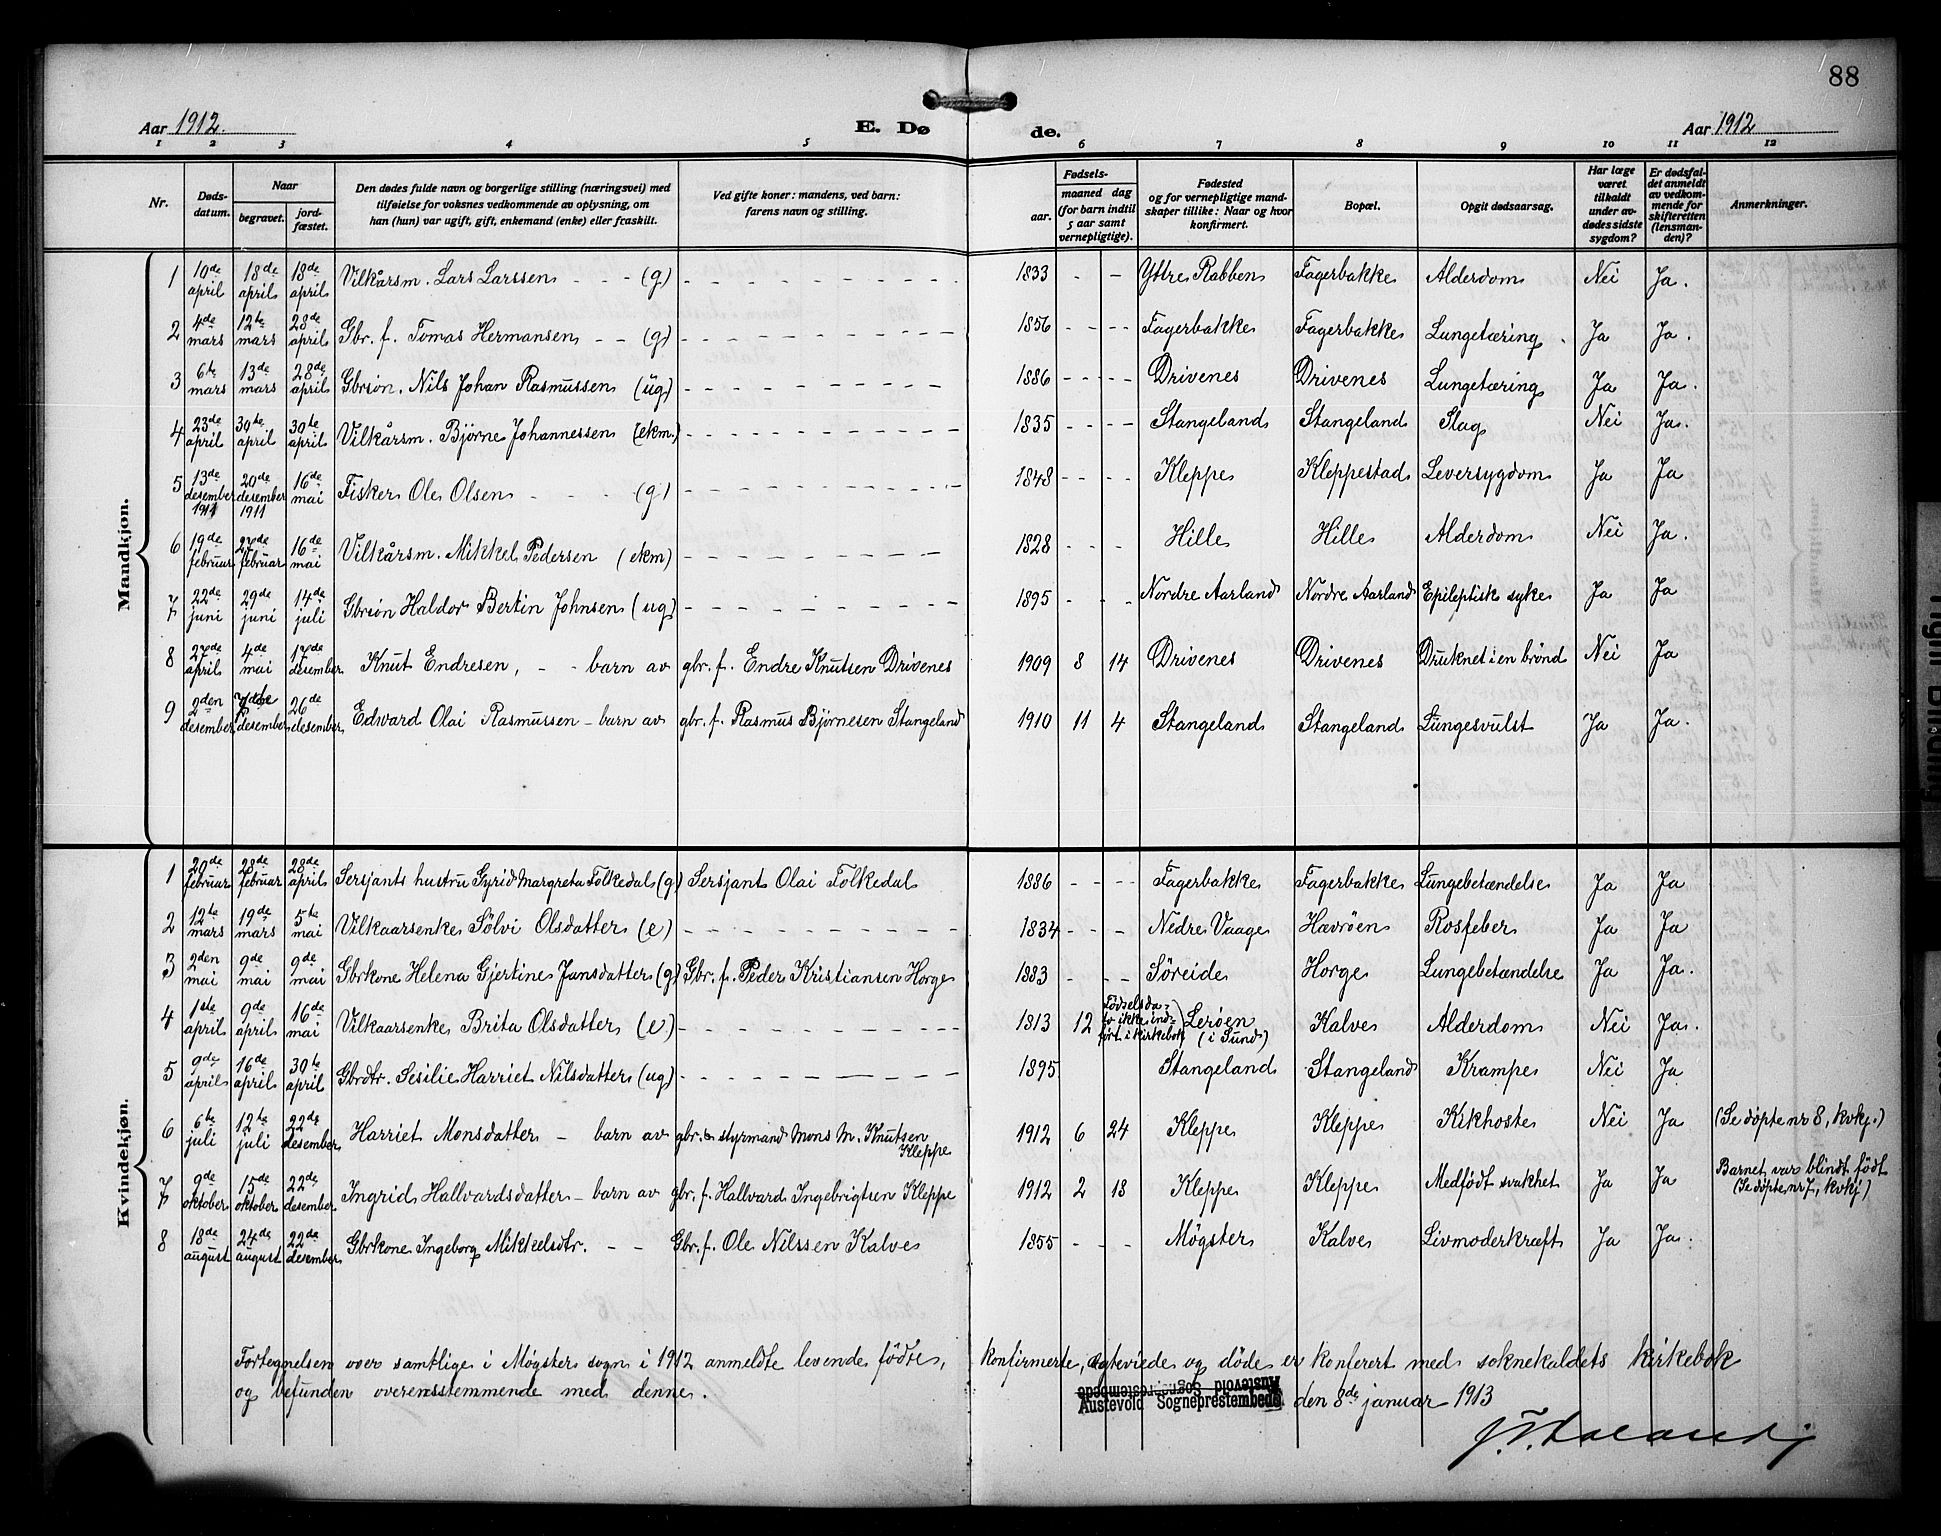 88
Aar 1912. E. Dø de. Aar 1912
1 2 3 4 5 6 7 8 9 10 11 12
Nr. | Døds-datum. | Naar begravet. | jord-fæstet. | Den dødes fulde navn og borgerlige stilling (næringsvei) med tilføielse for voksnes vedkommende av oplysning, om han (hun) var ugift, gift, enkemand (enke) eller fraskilt. | Ved gifte koner: mandens, ved barn: farens navn og stilling. | Fødsels- aar. | maaned dag (for barn indtil 5 aar samt vernepligtige). | Fødested og for vernepligtige mandskaper tillike: Naar og hvor konfirmert. | Bopæl. | Opgit dødsaarsag. | Har læge været tilkaldt under avdødes sidste sygdom? | Er dødsfaldet anmeldt av vedkommende for skifteretten (lensmanden)? | Anmerkninger.
Mandkjøn.
1 10de april 18de april 18de april Vilkårsm. Lars Larssen - - - (g) 1833 - - Yttre Rabben Fagerbakke Alderdom Nei Ja.
2 4de mars 12te mars 28de april Gbr. f. Tomas Hermansen - - (g) 1856 - - - - Fagerbakke Fagerbakke Lungetæring. Ja Ja.
3 6te mars 13de mars 28de april Gbrsön. Nils Johan Rasmussen (ug) 1886 - - - - Drivenes Drivenes Lungetæring Ja Ja.
4 23de april 30te april 30te april Vilkårsm. Bjørne Johannessen (ekm.) 1835 - - - - Stangeland Stangeland Slag Nei Ja.
5 13de desember 1911 20de desember 1911 16de mai Fisker Ole Olsen - - - (g) 1848 - - - - Kleppe Kleppestad Leversygdom Ja Ja
6 19de februar 27de februar 16de mai Vilkårsm. Mikkel Pedersen (ekm) 1828 - - - Hille Hille Alderdom Nei Ja.
7 22de juni 29de juni 14de juli Gbrsön Haldor Bertin Johnsen (ug) 1895 - - Nordre Aarland Nordre Aarland Epileptisk syke Ja Ja
8 27de april 4de mai 17de desember Knut Endresen, - - barn av gbr. f. Endre Knutsen Drivenes 1909 8 14 Drivenes Drivenes Druknet i en brönd Nei Ja
9 2den desember desember 26de desember Edward Olai Rasmussen - barn av gbr. f. Rasmus Bjørnesen Stangeland 1910 11 4 Stangeland Stangeland Lungesvulst Ja Ja.
Kvindekjøn.
1 20de februar 28de februar 28de april Sersjants hustru Gyrid Margreta Folkedal (g) Sersjant Olai Folkedal 1886 - - - - Fagerbakke Fagerbakke Lungebetændelse Ja Ja
2 12te mars 19de mars 5te mai Vilkaarsenke Sölvi Olsdatter (e) 1834 - - - Nedre Vaage Havröen Rosfeber Ja Ja
3 2den mai 9de mai 9de mai Gbrkone Helena Gjertine Jansdatter (g) Gbr. f. Peder Kristiansen Horge 1883 - - - Söreide Horge Lungebetændelse Ja Ja.
4 1ste april 9de april 16de mai Vilkaarsenke Brita Olsdatter (e) 1813 12 Födselsda-to ikke ind-fört i kirkebok) Leröen (i Sund) Kalve Alderdom Nei Ja.
5 9de april 16de april 30te april Gbrdtr. Sesilie Harriet Nilsdatter (ug) 1895 Stangeland Stangeland Krampe Nei Ja
6 6te juli 12te juli 22de desember Harriet Monsdatter - barn av gbr. & styrmand Mons M. Knutsen Kleppe 1912 6 24 Kleppe Kleppe Kikhoste Nei Ja (Se döpte nr 8, kvkj.)
7 9de oktober 15de oktober 22de desember Ingrid Hallvardsdatter - barn av gbr. f. Hallvard Ingebrigtsen Kleppe 1912 2 18 Kleppe Kleppe Medfödt svakhet Ja Ja Barnet var blindt födt (Se döpte nr 7, kvkj)
8 18de august 24de august 22de desember Gbrkone Ingeborg Mikkelsdtr. - - Gbr. f. Ole Nilssen Kalve 1855 - - - Møgster Kalve Livmoderkræft Ja Ja.
Fortegnelsen over samtlige i Møgster sogn i 1912 anmeldte levende födte, konfirmerte, egteviede og döde er konferert med soknekaldets kirkebok
og befunden overensstemmende med denne.
Austevold Sogneprestembede
Austevold Sogneprestembede, den 8de januar 1913